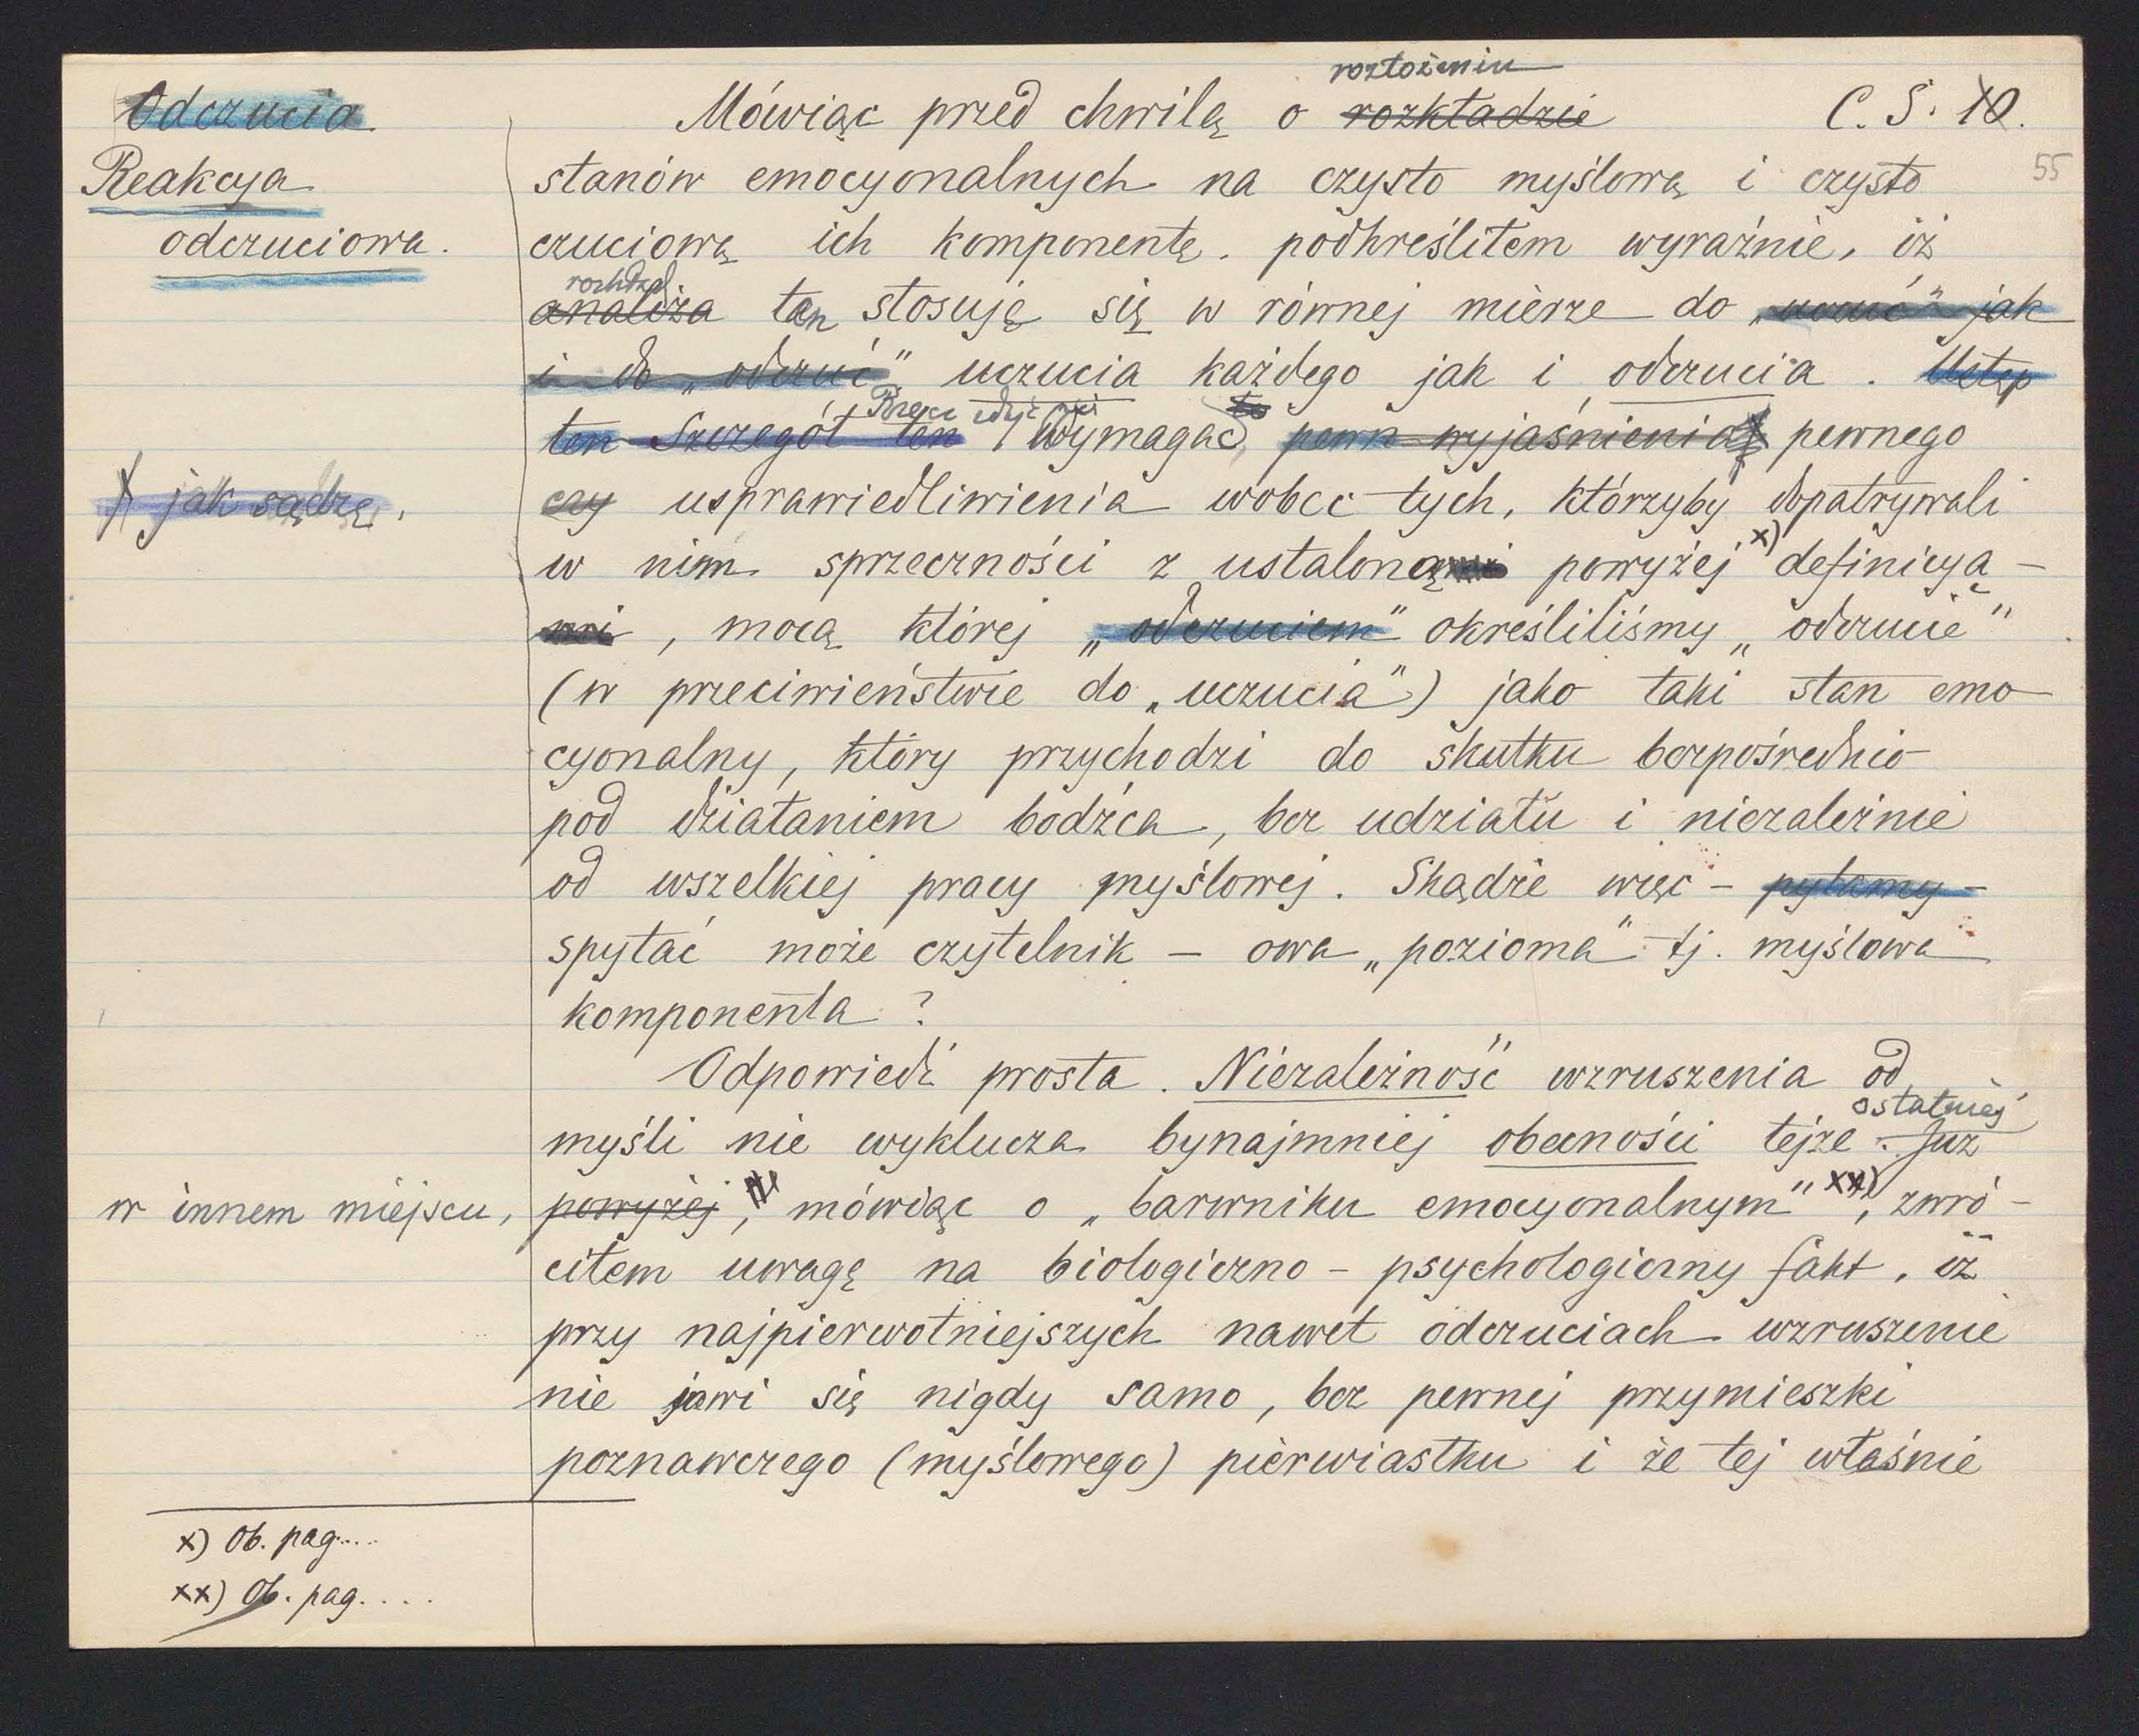 rozłożeniu
Odczucia Mówiąc przed chwilą o rozkładzie C. S. 10.
Reakcya stanów emocyonalnych na czysto myślową i czysto 55
odczuciowa. czuciową ich komponentę, podkreśliłem wyraźnie, iż
rozkład
analiza ten stosuję się w równej mierze do „uczuć" jak
i do „odczuć" uczucia każdego jak i odczucia. Ustęp
Rzecz
to
ten Szczegół ten wymagać pewn wyjaśnienia pewnego
jak sądzę, czy usprawiedliwienia wobec tych, którzyby dopatrywali
w nim sprzeczności z ustaloną powyżej x) definicyą -
mi, mocą której „odczuciem" określiliśmy „odczucie"
(w przeciwieństwie do „uczucia") jako taki stan emo
cyonalny, który przychodzi do skutku bezpośrednio
pod działaniem bodźca, bez udziału i niezależnie
od wszelkiej pracy myślowej. Skądże więc - pytamy -
spytać może czytelnik - owa „pozioma" tj. myślowa
komponenta?
Odpowiedź prosta. Niezależność wzruszenia od
ostatniej
myśli nie wyklucza bynajmniej obecności tejże. Już
w innem miejscu, powyżej, mówiąc o „barwniku emocyonalnym" xx), zwró-
ciłem uwagę na biologiczno - psychologiczny fakt, iż
przy najpierwotniejszych nawet odczuciach wzruszenie
nie jawi się nigdy samo, bez pewnej przymieszki
poznawczego (myślowego) pierwiastku i że tej właśnie
x) Ob. pag....
xx) Ob. pag....